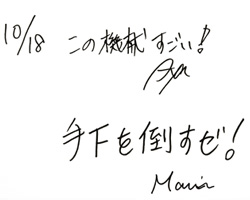 10/18 この機械すごい!
Aya
手下を倒すゼ!
Maria